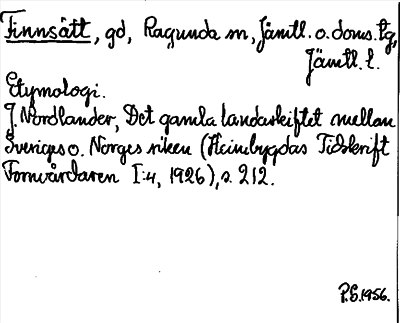 Finnsätt, gd, Ragunda sn, Jämtl. o. doms. tg,
Jämtl. l.
Etymologi.
J. Nordlander, Det gamla landaskiftet mellan
Sveriges o. Norges riken (Heimbygdas Tidskrift
Fornvårdaren I:4, 1926), s. 212.
P.S. 1956.